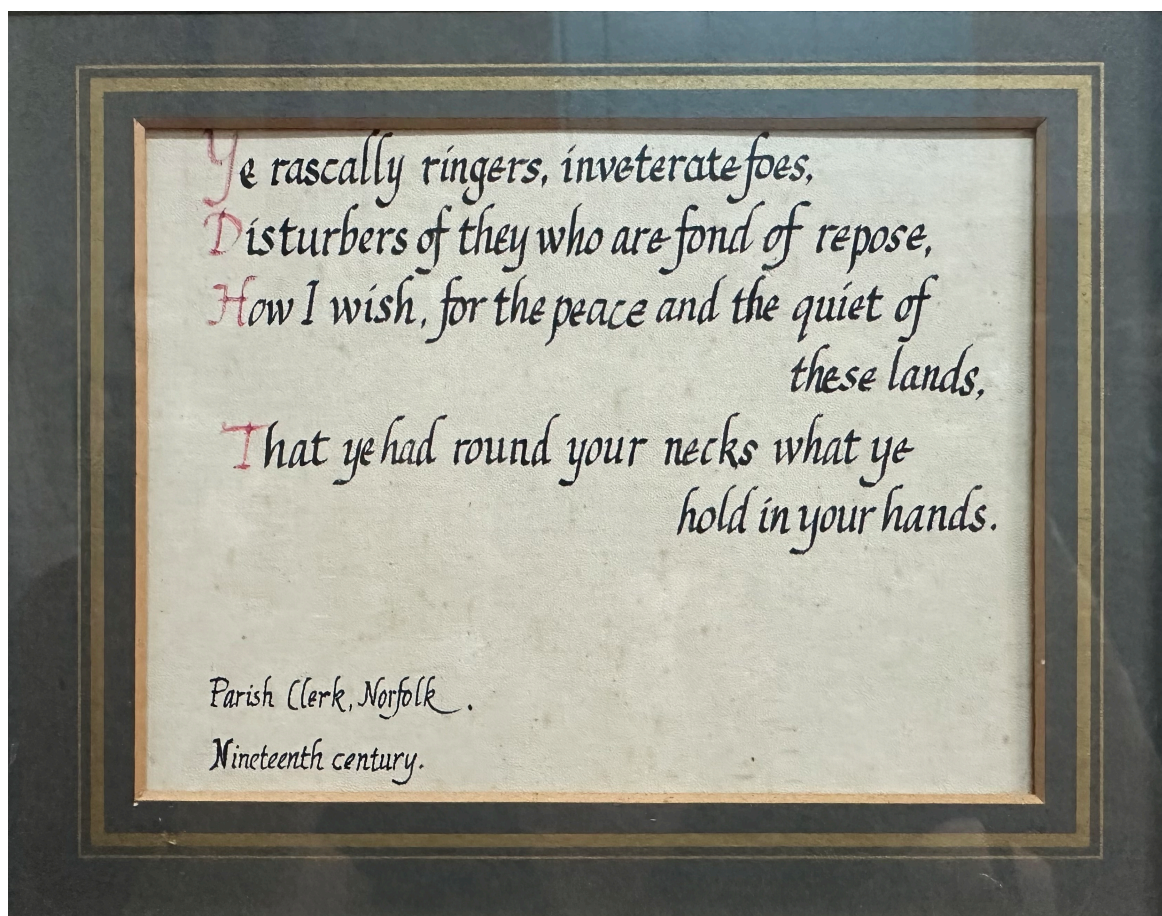 Ye rascally ringers, inveterate foes,
Disturbers of they who are fond of repose,
How I wish, for the peace and the quiet of
these lands,
That ye had round your necks what ye
hold in your hands.
Parish Clerk, Norfolk.
Nineteenth century.